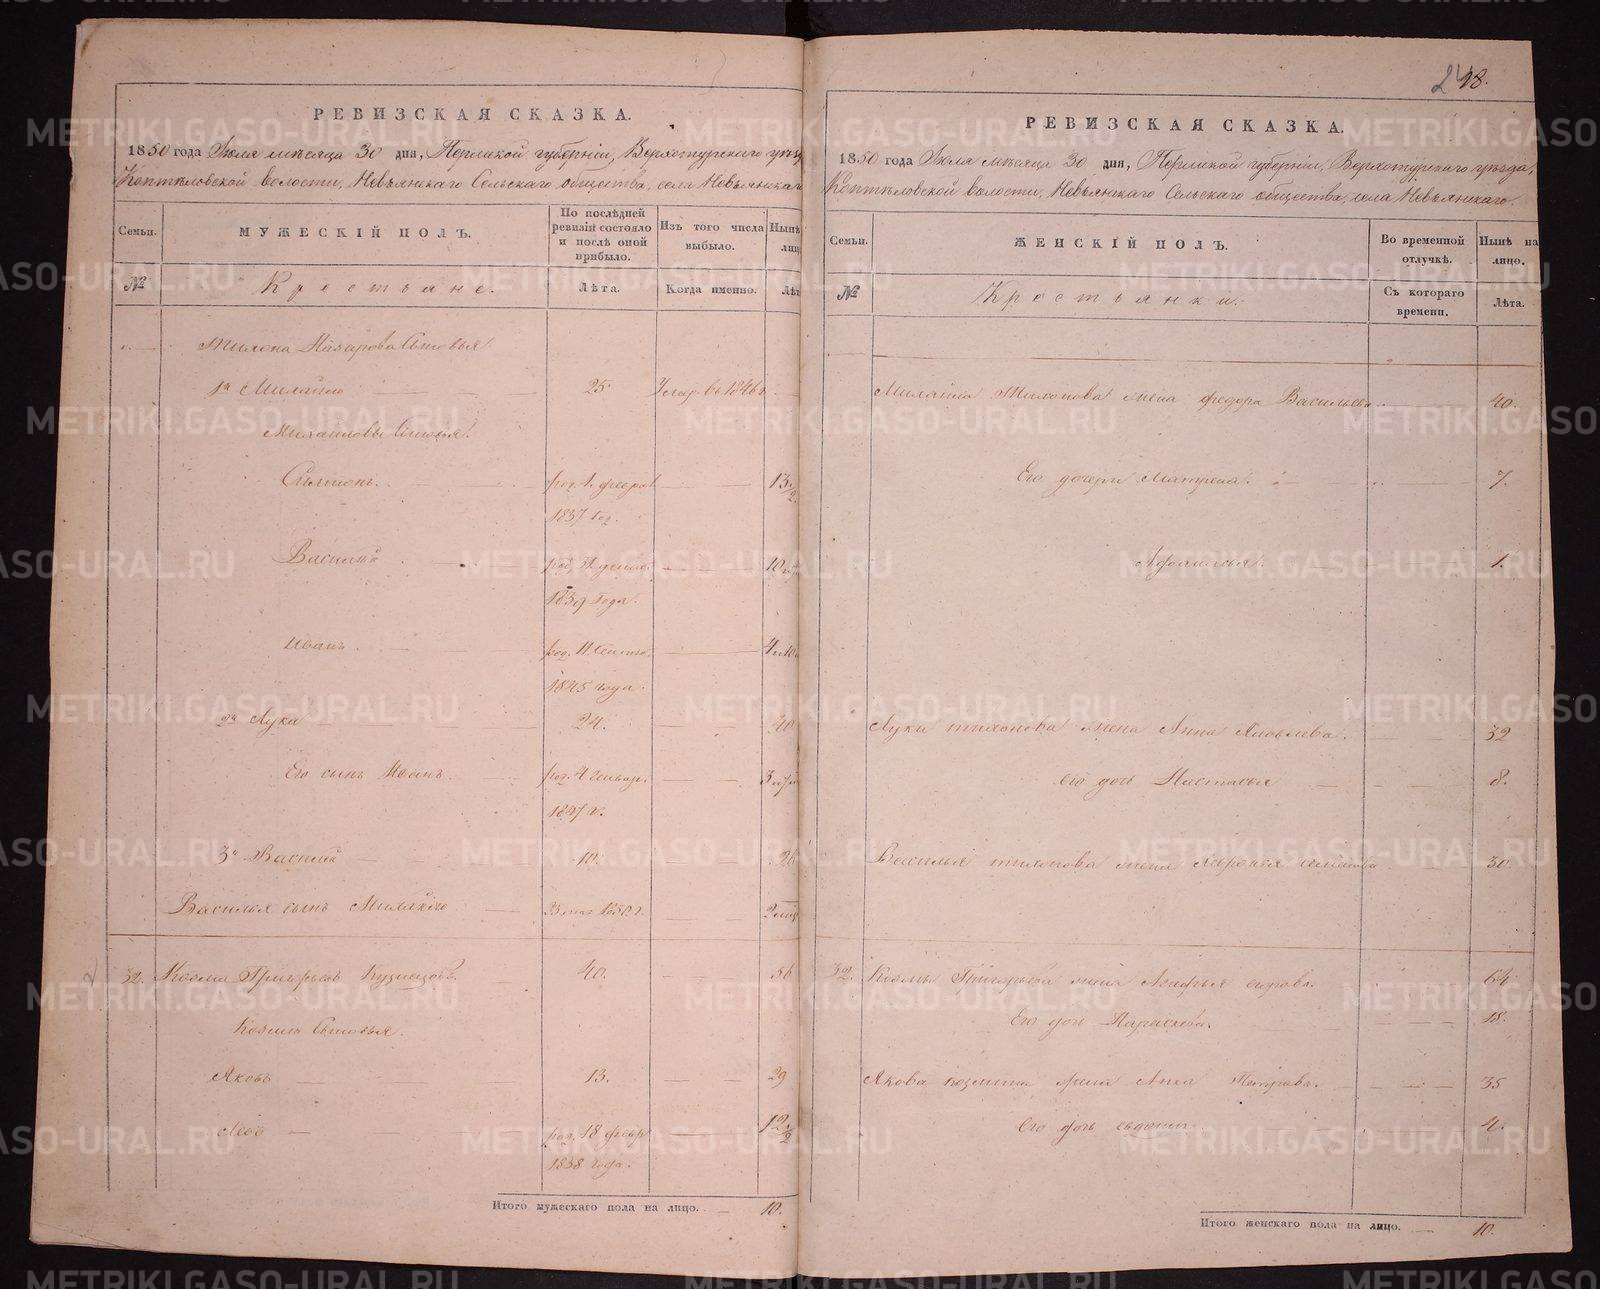 РЕВИЗСКАЯ СКАЗКА.
1850 года Іюля мѣсяца 30 дня, Пермской губерніи, Верхотурскаго уѣзда
Коптѣловской волости, Невьянскаго Сельскаго общества, села Невьянскаго
Семьи.
МУЖЕСКІЙ ПОЛЪ.
По послѣдней ревизіи состояло и послѣ оной прибыло.
Изъ того числа выбыло.
Нынѣ
№
Крестьяне.
Лѣта.
Когда именно.
Тихона Назарова Сыновья
1й Михайло 25 Умер. въ 1846 г.
Михайловы Сыновья.
Сѣмионъ. род. 1. февра 13 1/2
1837 год.
Василій род. 31 10
1839 Года.
Иванъ. род. 11 Сентя. 4
1845 года.
2й Лука 24. 40
Его сынъ Иванъ. род. 4 Генвар. 3
1847 г.
3й Василій 10. 26
Василья сынъ Михайло 23 мая 1850 г. 2
32. Козма Григорьевъ Кузнецовъ 40. 56
Козмы Сыновья.
Яковъ 13. 29
Левъ род. 18 февр 12 1/2
1838 года.
Итого мужескаго пола на лицо. 10.
248.
РЕВИЗСКАЯ СКАЗКА.
1850 года Іюля мѣсяца 30 дня, Пермской губерніи, Верхотурскаго уѣзда,
Коптѣловской волости, Невьянскаго Сельскаго общества, села Невьянскаго.
Семьи.
ЖЕНСКІЙ ПОЛЪ.
Во временной отлучкѣ.
Нынѣ на лицо.
№
Крестьянки.
Съ котораго времени.
Лѣта.
Михайла Тихонова жена Федора Васильева 40.
Его дочери Матрена. 7.
Афанасья. 1.
Луки тихонова жена Анна Яковлева. 32
его дочь Настасья 8.
Василья тихонова жена 30
32. Козмы Григорьева жена Агафья 64
Его дочь Параскева. 18.
Якова козмина жена Анна Петрова. 35
Его дочь евдокия 4.
Итого женскаго пола на лицо. 10.
METRIKI.GASO-URAL.RU